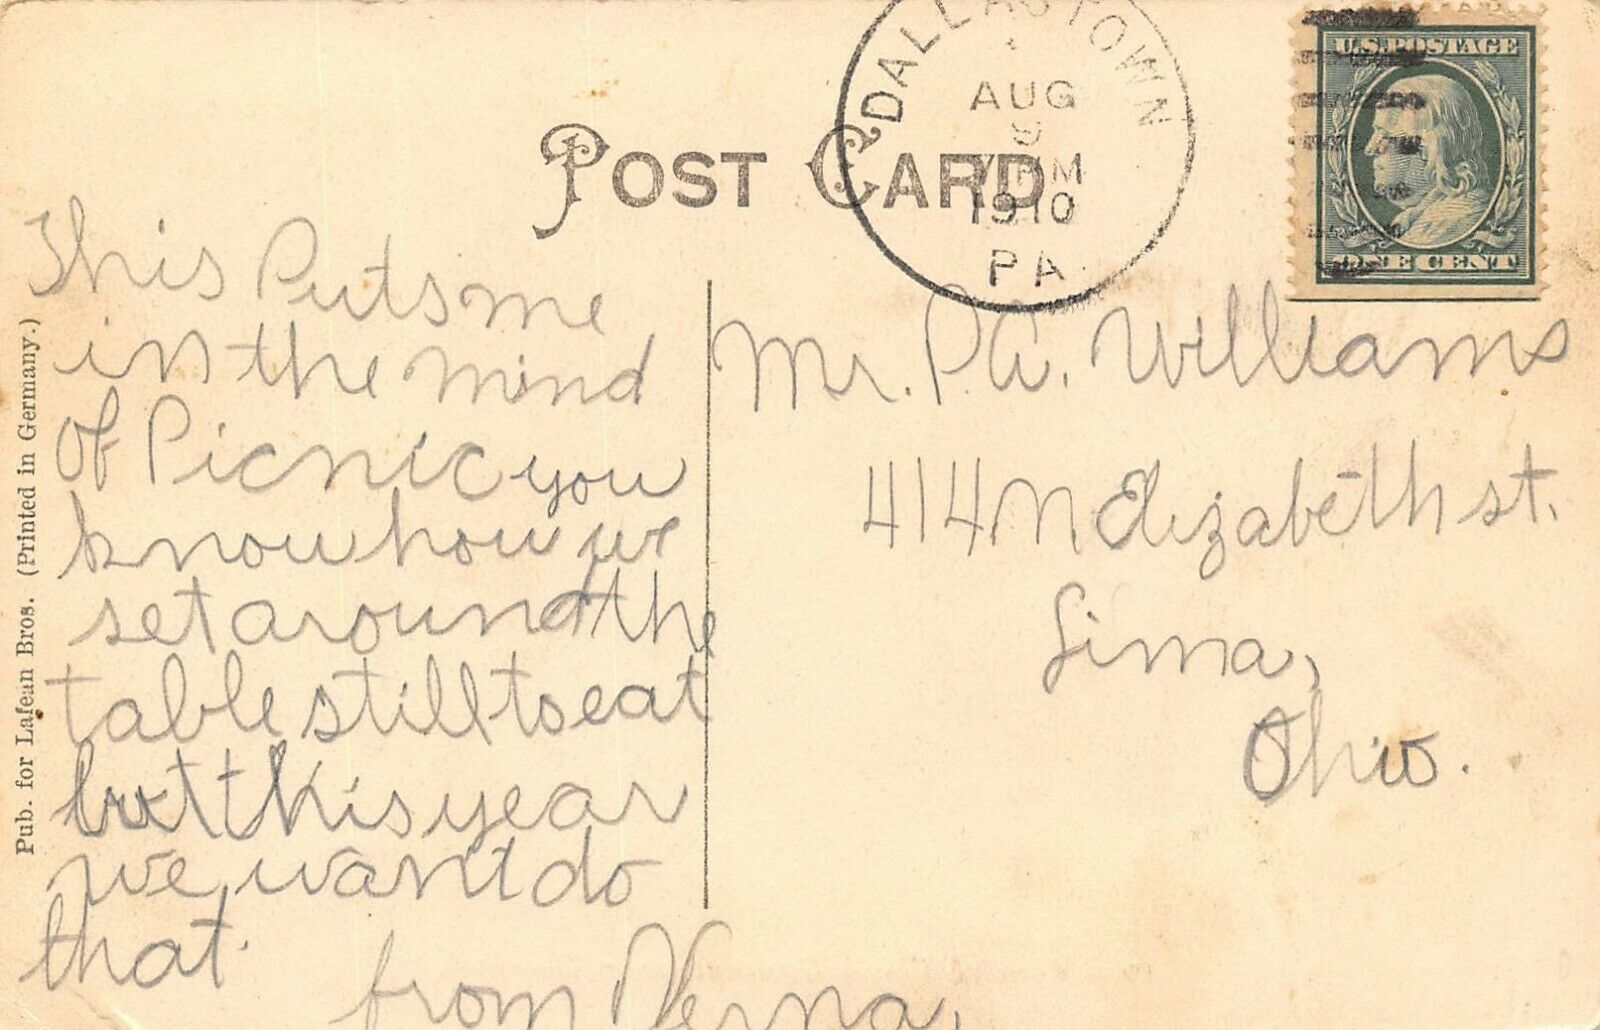 POST CARD
DALLASTOWN
AUG
9
1910
PA
U.S. POSTAGE
ONE CENT
This Puts me
in the mind
of Picnic you
know how we
set around the
table still to eat
but this year
we want do
that.
from Verna,
Mr. P.A. Williams
414 N Elizabeth st.
Lima,
Ohio.
Pub. for Lafean Bros. (Printed in Germany.)